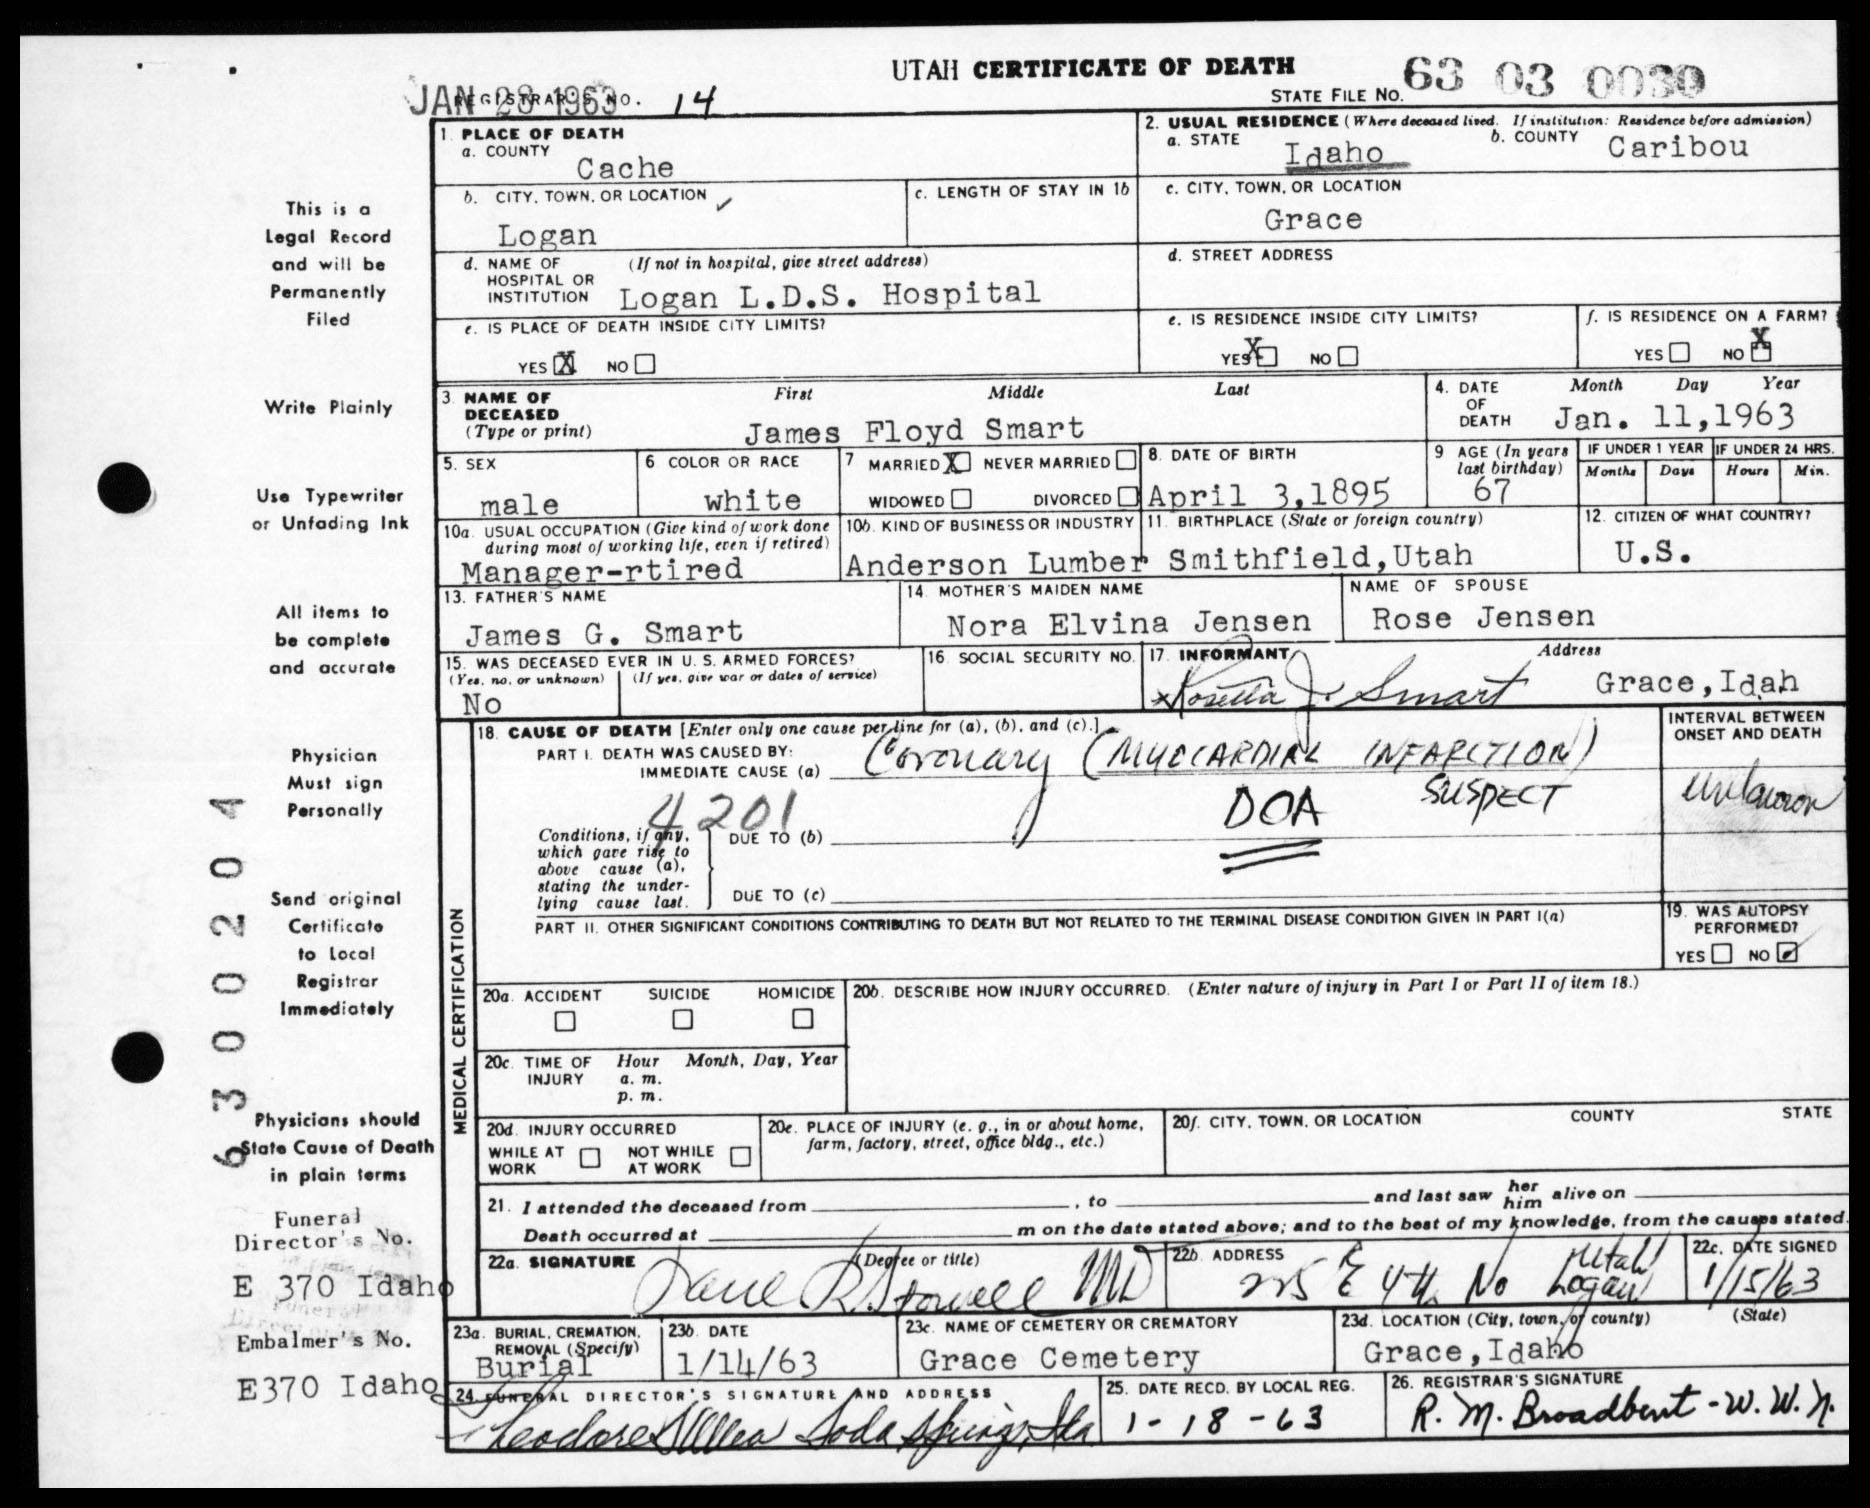 UTAH CERTIFICATE OF DEATH
JAN 28 1963
REGISTRAR'S NO. 14
STATE FILE NO. 63 03 0030
1. PLACE OF DEATH
a. COUNTY
Cache
2. USUAL RESIDENCE (Where deceased lived. If institution: Residence before admission)
a. STATE Idaho
b. COUNTY Caribou
b. CITY, TOWN, OR LOCATION ✓
Logan
c. LENGTH OF STAY IN 1b
c. CITY, TOWN, OR LOCATION
Grace
d. NAME OF HOSPITAL OR INSTITUTION (If not in hospital, give street address)
Logan L.D.S. Hospital
d. STREET ADDRESS
e. IS PLACE OF DEATH INSIDE CITY LIMITS?
YES X NO
e. IS RESIDENCE INSIDE CITY LIMITS?
YES X NO
f. IS RESIDENCE ON A FARM?
YES NO X
3. NAME OF DECEASED (Type or print)
First Middle Last
James Floyd Smart
4. DATE OF DEATH
Month Day Year
Jan. 11,1963
5. SEX
male
6 COLOR OR RACE
white
7 MARRIED X NEVER MARRIED
WIDOWED DIVORCED
8. DATE OF BIRTH
April 3,1895
9 AGE (In years last birthday)
67
IF UNDER 1 YEAR
Months Days
IF UNDER 24 HRS.
Hours Min.
10a. USUAL OCCUPATION (Give kind of work done during most of working life, even if retired)
Manager-rtired
10b. KIND OF BUSINESS OR INDUSTRY
Anderson Lumber
11. BIRTHPLACE (State or foreign country)
Smithfield,Utah
12. CITIZEN OF WHAT COUNTRY?
U.S.
13. FATHER'S NAME
James G. Smart
14. MOTHER'S MAIDEN NAME
Nora Elvina Jensen
NAME OF SPOUSE
Rose Jensen
15. WAS DECEASED EVER IN U. S. ARMED FORCES?
(Yes, no, or unknown) (If yes, give war or dates of service)
No
16. SOCIAL SECURITY NO.
17. INFORMANT Address
x Rosetta J. Smart Grace,Idah
MEDICAL CERTIFICATION
18. CAUSE OF DEATH [Enter only one cause per line for (a), (b), and (c).]
PART I. DEATH WAS CAUSED BY:
IMMEDIATE CAUSE (a) Coronary (MYOCARDIAL INFARCTION)
SUSPECT
DOA
4201
INTERVAL BETWEEN ONSET AND DEATH
unknown
Conditions, if any, which gave rise to above cause (a), stating the underlying cause last.
DUE TO (b)
DUE TO (c)
PART II. OTHER SIGNIFICANT CONDITIONS CONTRIBUTING TO DEATH BUT NOT RELATED TO THE TERMINAL DISEASE CONDITION GIVEN IN PART I(a)
19. WAS AUTOPSY PERFORMED?
YES NO ✓
20a. ACCIDENT SUICIDE HOMICIDE
20b. DESCRIBE HOW INJURY OCCURRED. (Enter nature of injury in Part I or Part II of item 18.)
20c. TIME OF INJURY
Hour Month, Day, Year
a. m.
p. m.
20d. INJURY OCCURRED
WHILE AT WORK NOT WHILE AT WORK
20e. PLACE OF INJURY (e. g., in or about home, farm, factory, street, office bldg., etc.)
20f. CITY, TOWN, OR LOCATION COUNTY STATE
21. I attended the deceased from , to and last saw her him alive on
Death occurred at m on the date stated above; and to the best of my knowledge, from the causes stated.
22a. SIGNATURE (Degree or title)
R. Stowell MD
22b. ADDRESS
225 E 4th No Logan Utah
22c. DATE SIGNED
1/15/63
23a. BURIAL, CREMATION, REMOVAL (Specify)
Burial
23b. DATE
1/14/63
23c. NAME OF CEMETERY OR CREMATORY
Grace Cemetery
23d. LOCATION (City, town, or county) (State)
Grace,Idaho
24. FUNERAL DIRECTOR'S SIGNATURE AND ADDRESS
Theodore Soda Springs, Ida
25. DATE RECD. BY LOCAL REG.
1-18-63
26. REGISTRAR'S SIGNATURE
R. M. Broadbent - W. W. N.
This is a
Legal Record
and will be
Permanently
Filed
Write Plainly
Use Typewriter
or Unfading Ink
All items to
be complete
and accurate
Physician
Must sign
Personally
Send original
Certificate
to Local
Registrar
Immediately
Physicians should
State Cause of Death
in plain terms
Funeral
Director's No.
E 370 Idaho
Embalmer's No.
E370 Idaho
6300204